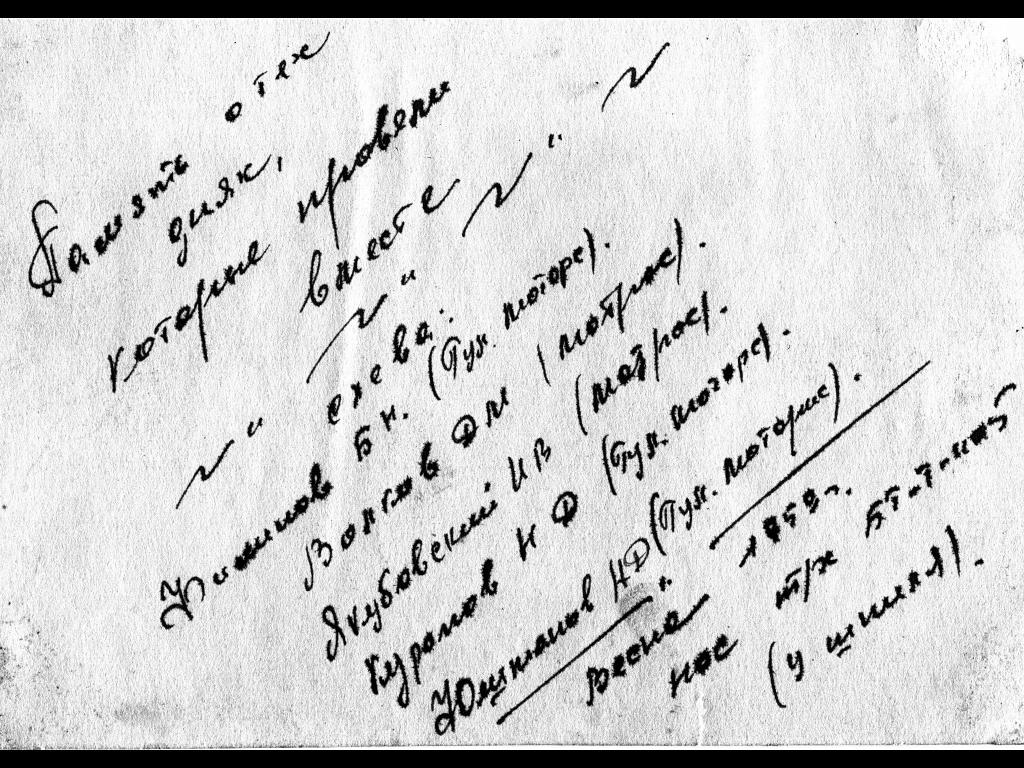 Память о тех
днях,
которые провели
вместе
слева:
Б Н. (Пул. моторс).
Волков ДМ (моторис).
Якубовский ИВ (матрос).
Куранов НД (Пул. моторс).
Юшманов НД (Пул. моторис).
Весна 1959г.
нос
(у шпиля).